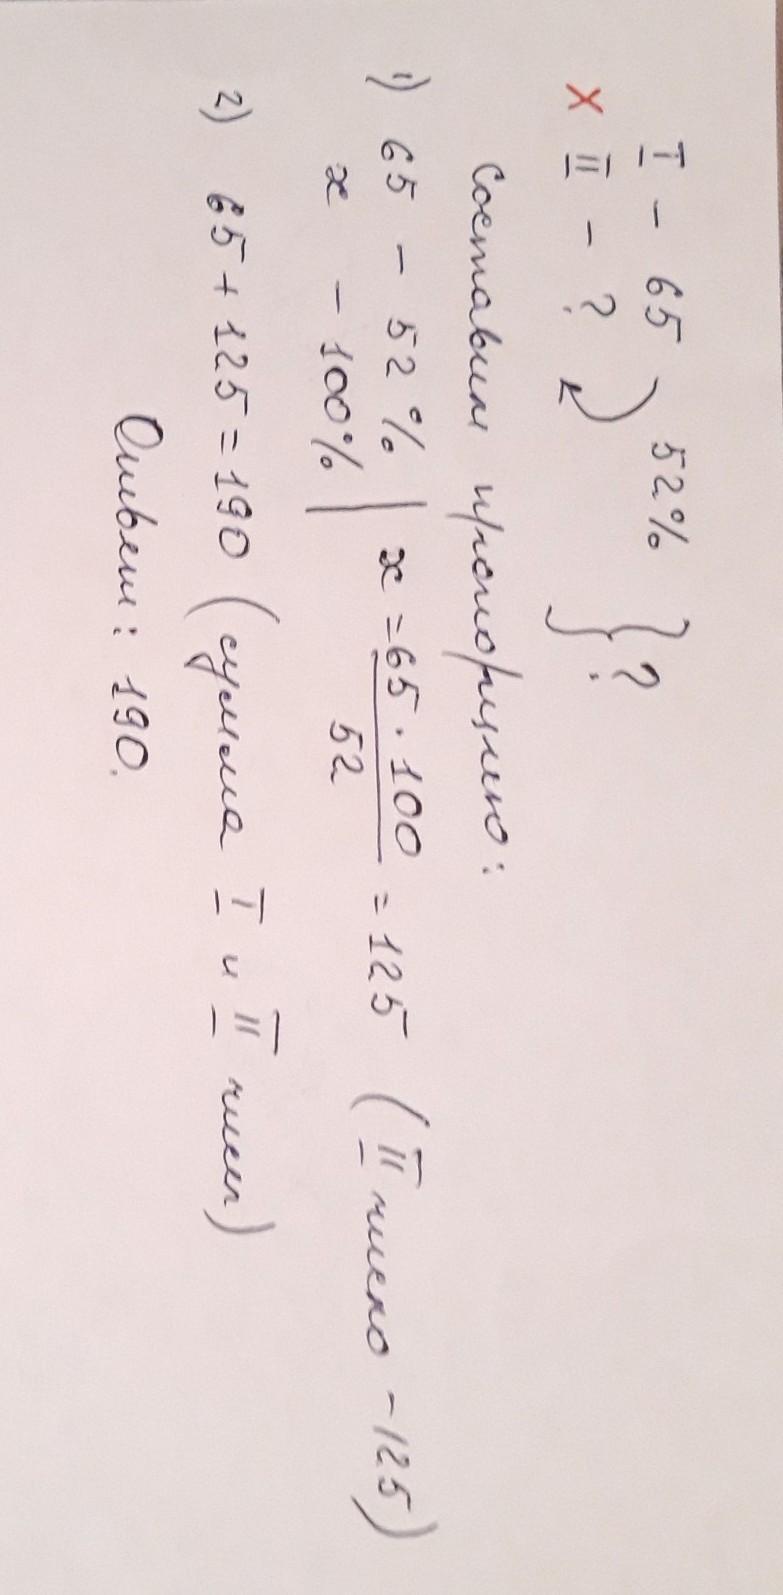 I - 65 ) 52% } ?
x II - ?
Составим пропорцию:
1) 65 - 52% | x = 65 · 100 / 52 = 125 (II число - 125)
x - 100% |
2) 65 + 125 = 190 (сумма I и II чисел)
Ответ: 190.